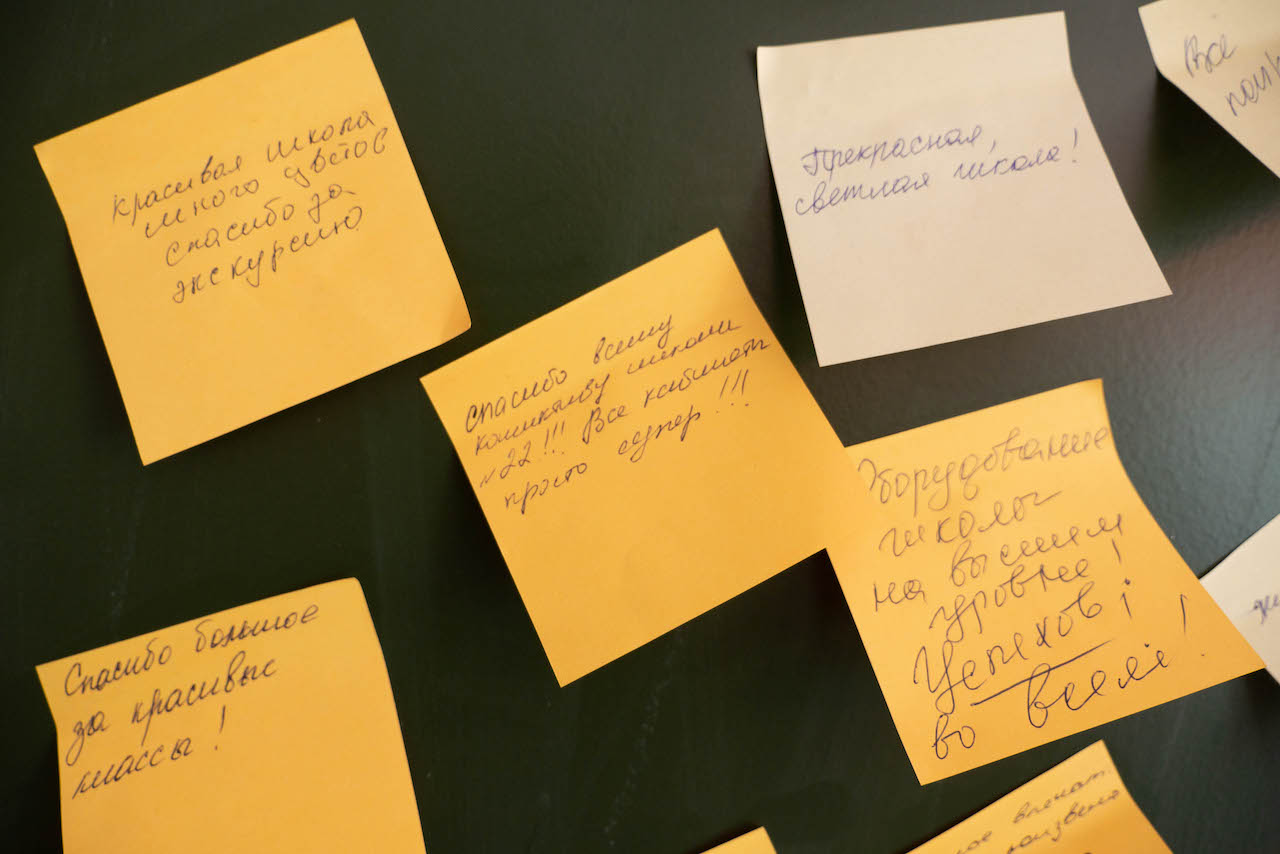 красивая школа
много цветов
спасибо за
экскурсию
Прекрасная,
светлая школа!
Все
спасибо всему
коллективу школы
№22!!! Все кабинеты
просто супер!!!
Оборудование
школы
на высшем
уровне!
Успехов
во всём!
Спасибо большое
за красивые
классы!